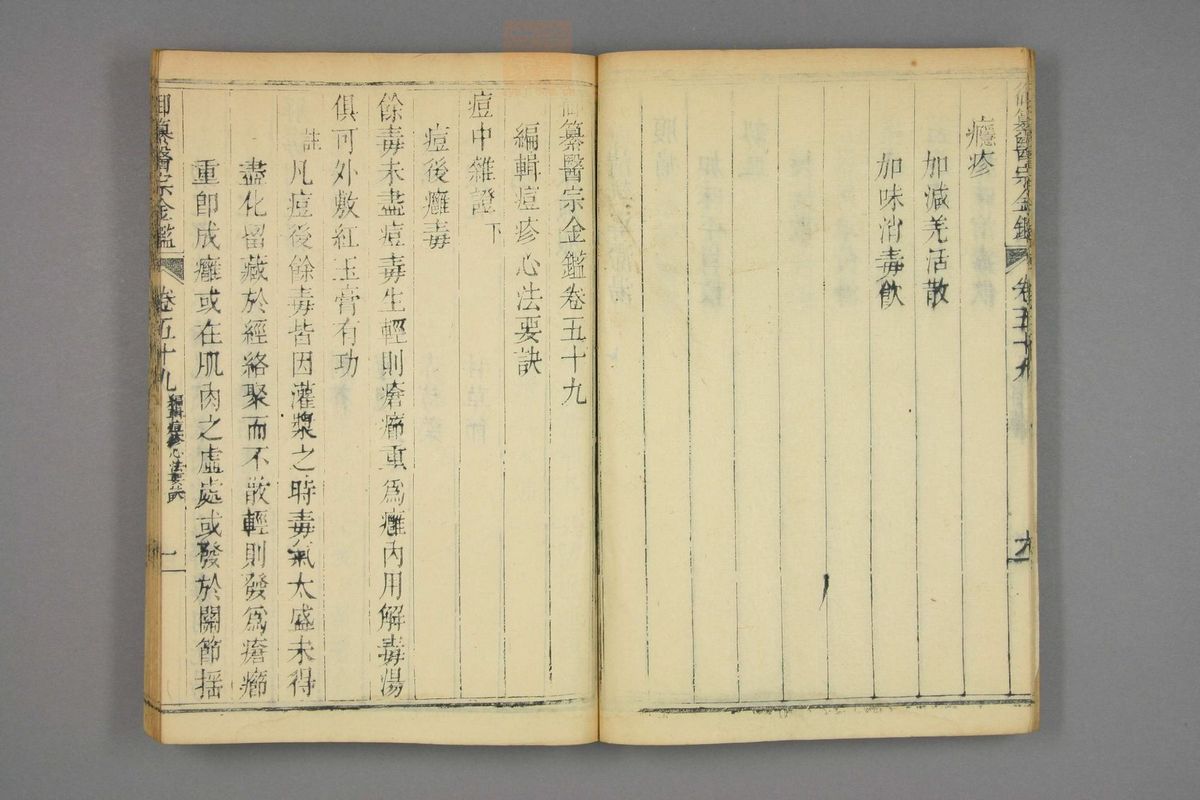 御纂醫宗金鑑 卷五十九 六
癮疹
加減羌活散
加味消毒飲
御纂醫宗金鑑卷五十九
編輯痘疹心法要訣
痘中雜證下
痘後癰毒
餘毒未盡痘毒生輕則瘡癤重爲癰內用解毒湯
俱可外敷紅玉膏有功
註凡痘後餘毒皆因灌漿之時毒氣太盛未得
盡化留藏於經絡聚而不散輕則發爲瘡癤
重卽成癰或在肌肉之虛處或發於關節搖
御纂醫宗金鑑 卷五十九 編輯痘疹心法要訣 一